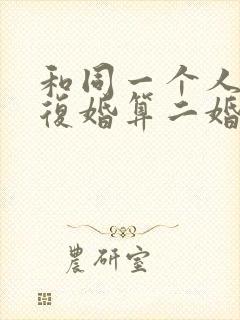 和同一个人
復婚算二婚
農研室